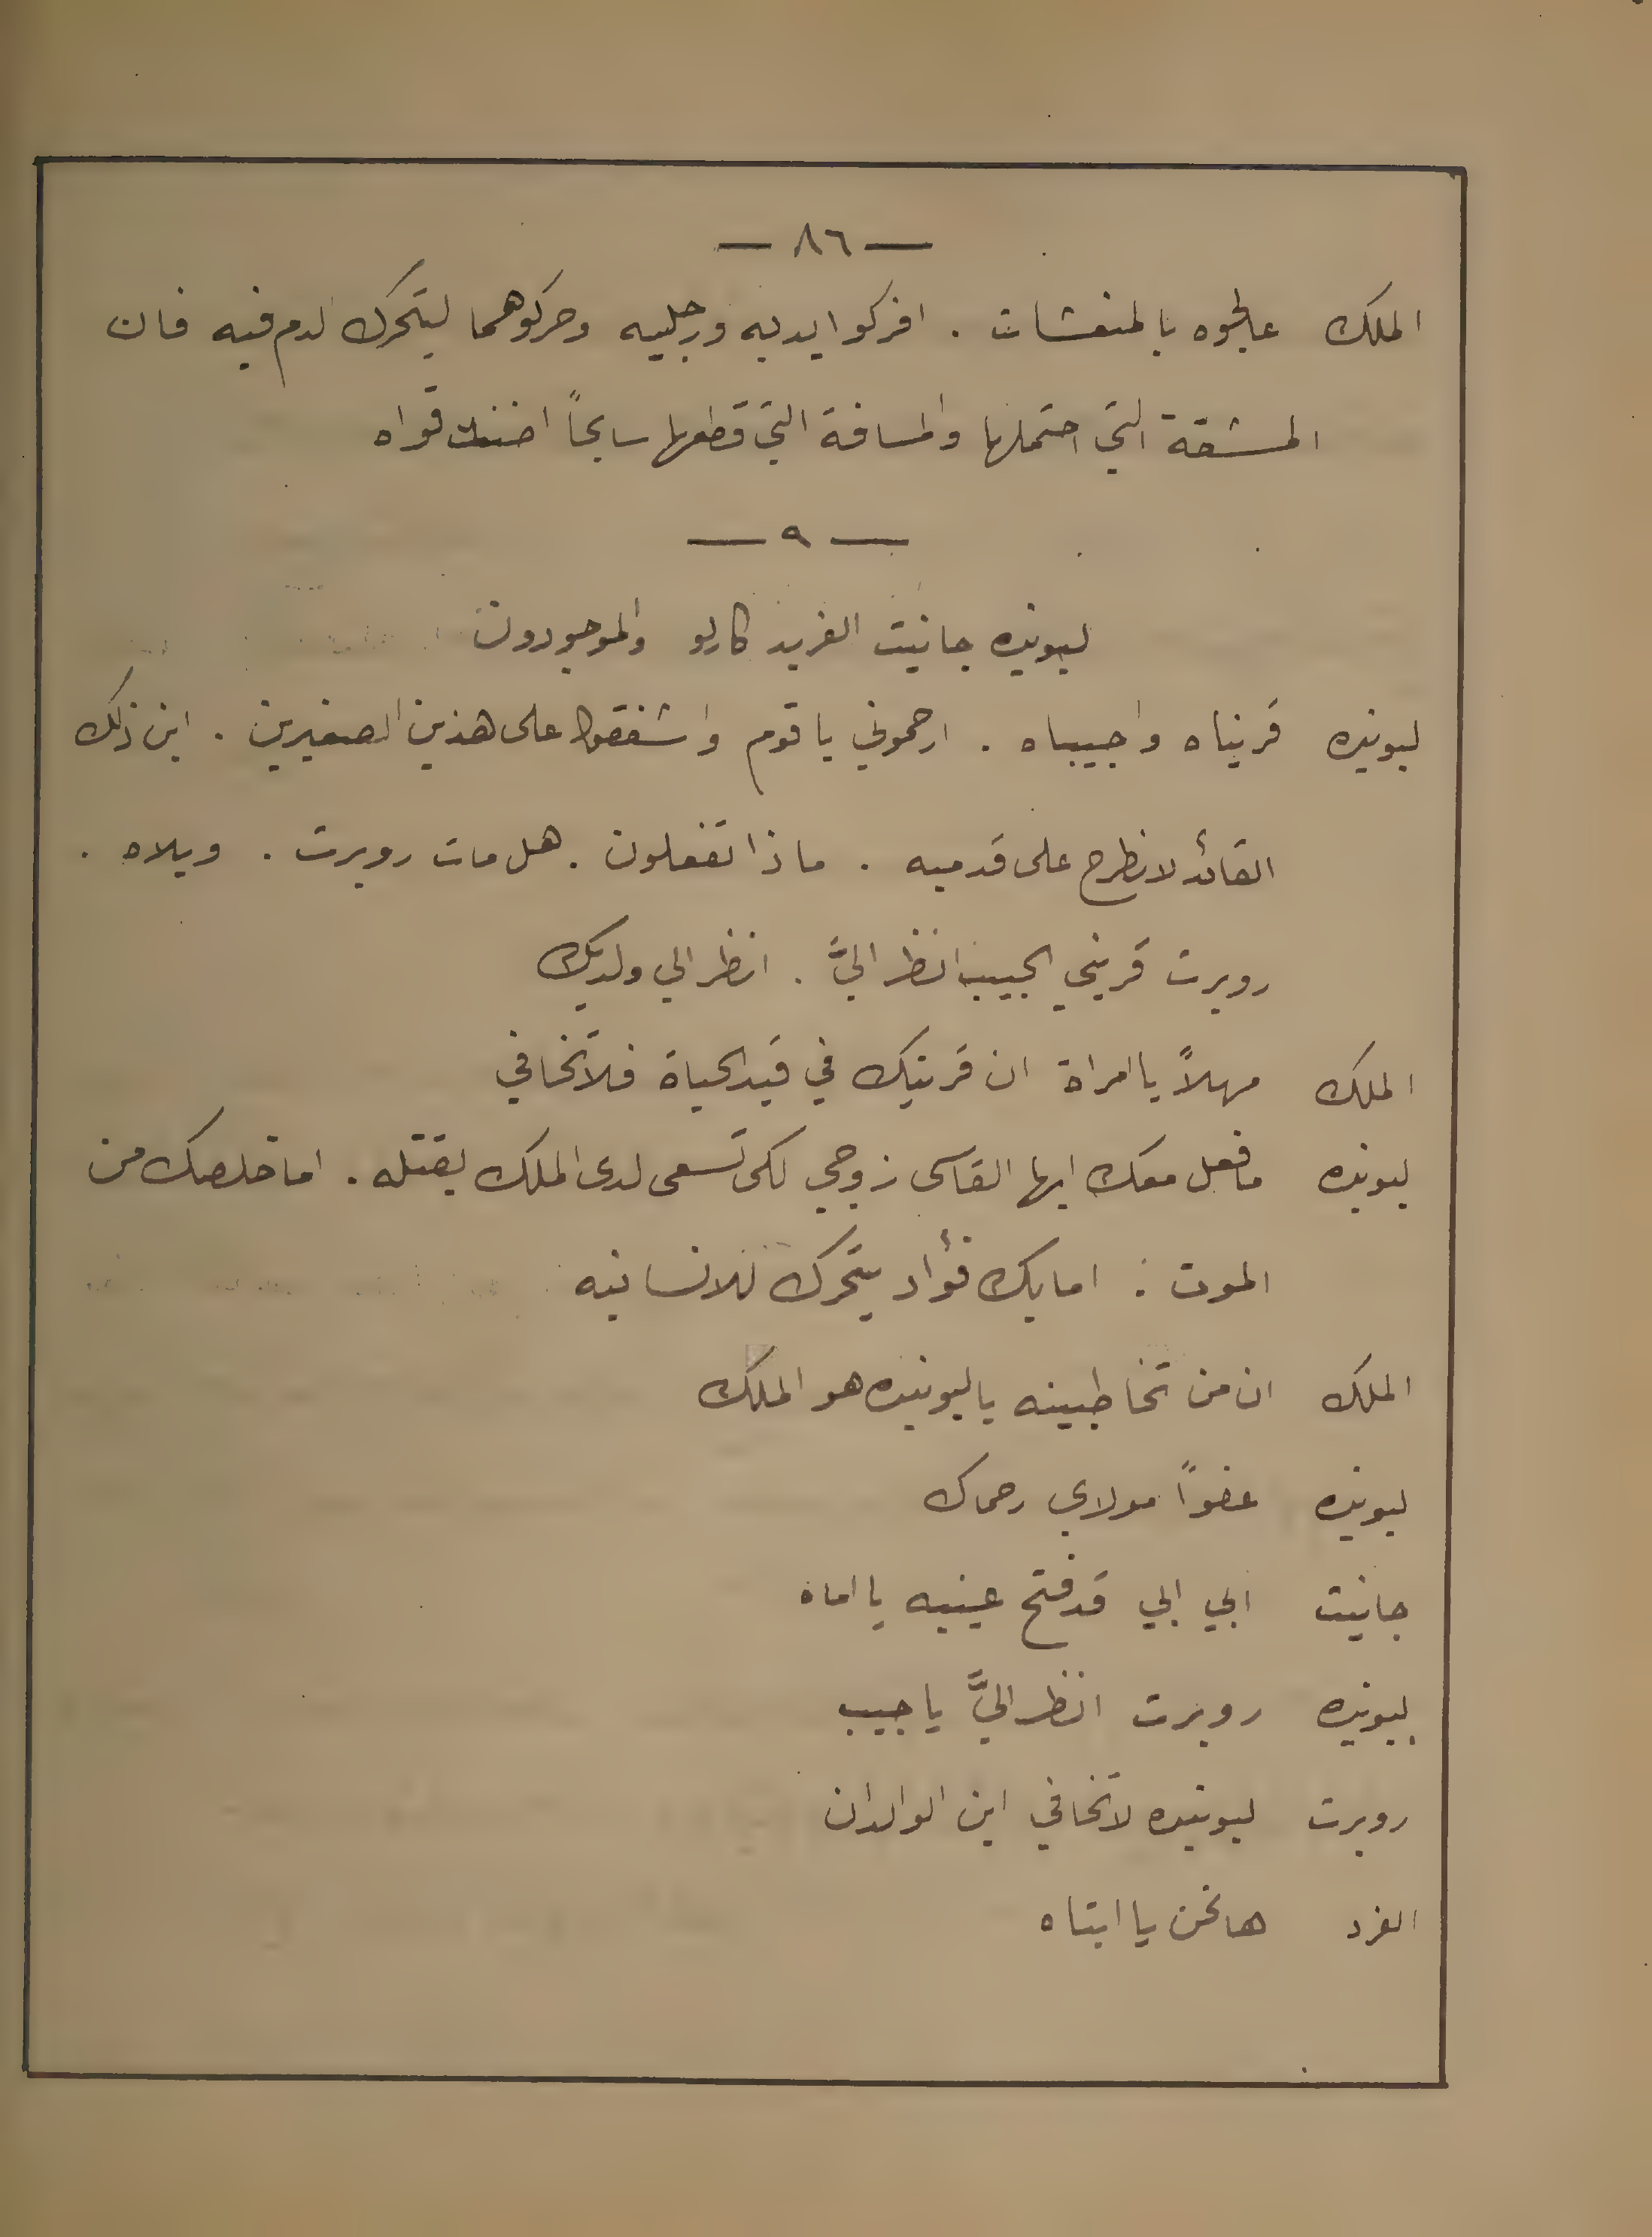 — ٨٦ —
الملك عالجوه بالمنعشات . افركوا يديه ورجليه وحركوهما ليتحرك الدم فيه فان
المشقة التي احتملها والمسافة التي قطعها سابحاً اضنت قواه
— ٩ —
ليونيده جانيت الفريد كارلو والموجودون
ليونيده قريناه واحبيباه . ارحموني يا قوم واشفقوا على هذين الصغيرين . اين ذلك
القائد لانطرح على قدميه . ماذا تفعلون . هل مات روبرت . ويلاه .
روبرت قريني الحبيب انظر اليَّ . انظر الي ولديك
الملك مهلاً يا امراة ان قرينك في قيد الحياة فلا تخافي
ليونيده ما فعل معك ايها القاسى زوجي لكى تسعى لدى الملك بقتله . اما خلصك من
الموت . اما بك فؤاد يتحرك للانسانيه
الملك ان من تخاطبينه يا ليونيده هو الملك
ليونيده عفواً مولاي رحماك
جانيت ابي ابي قد فتح عينيه يا اماه
ليونيده روبرت انظر اليَّ يا حبيب
روبرت ليونيده لا تخافي اين الوالدان
الفرد ها نحن يا ابتاه